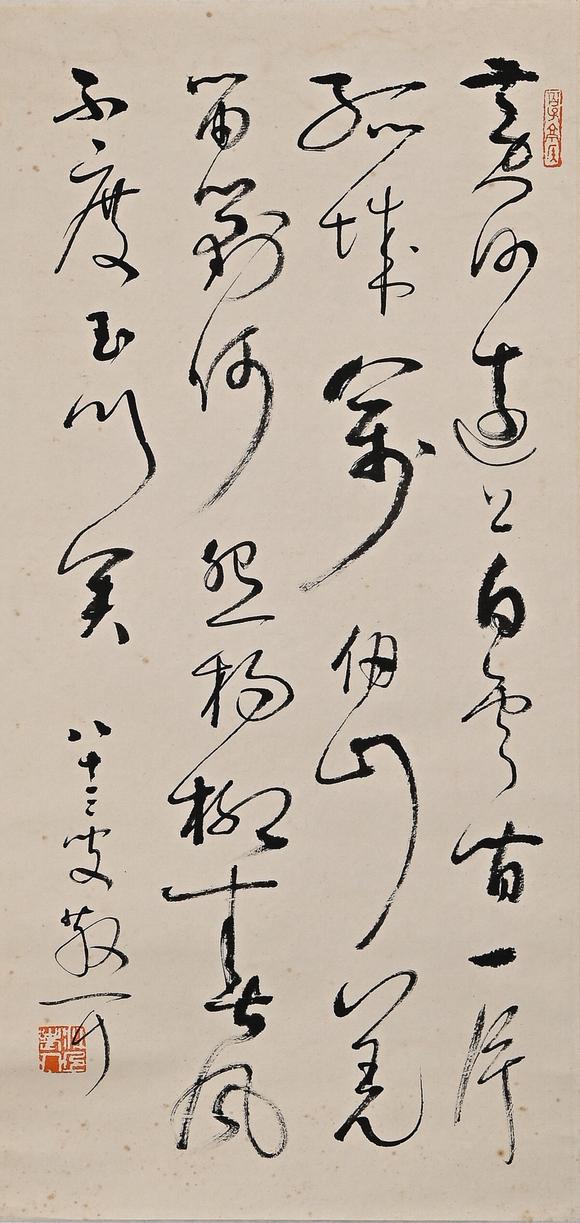 黄河遠上白雲間一片
孤城萬仞山羌
笛何怨楊柳春風
不度玉門關
八十二叟散耳